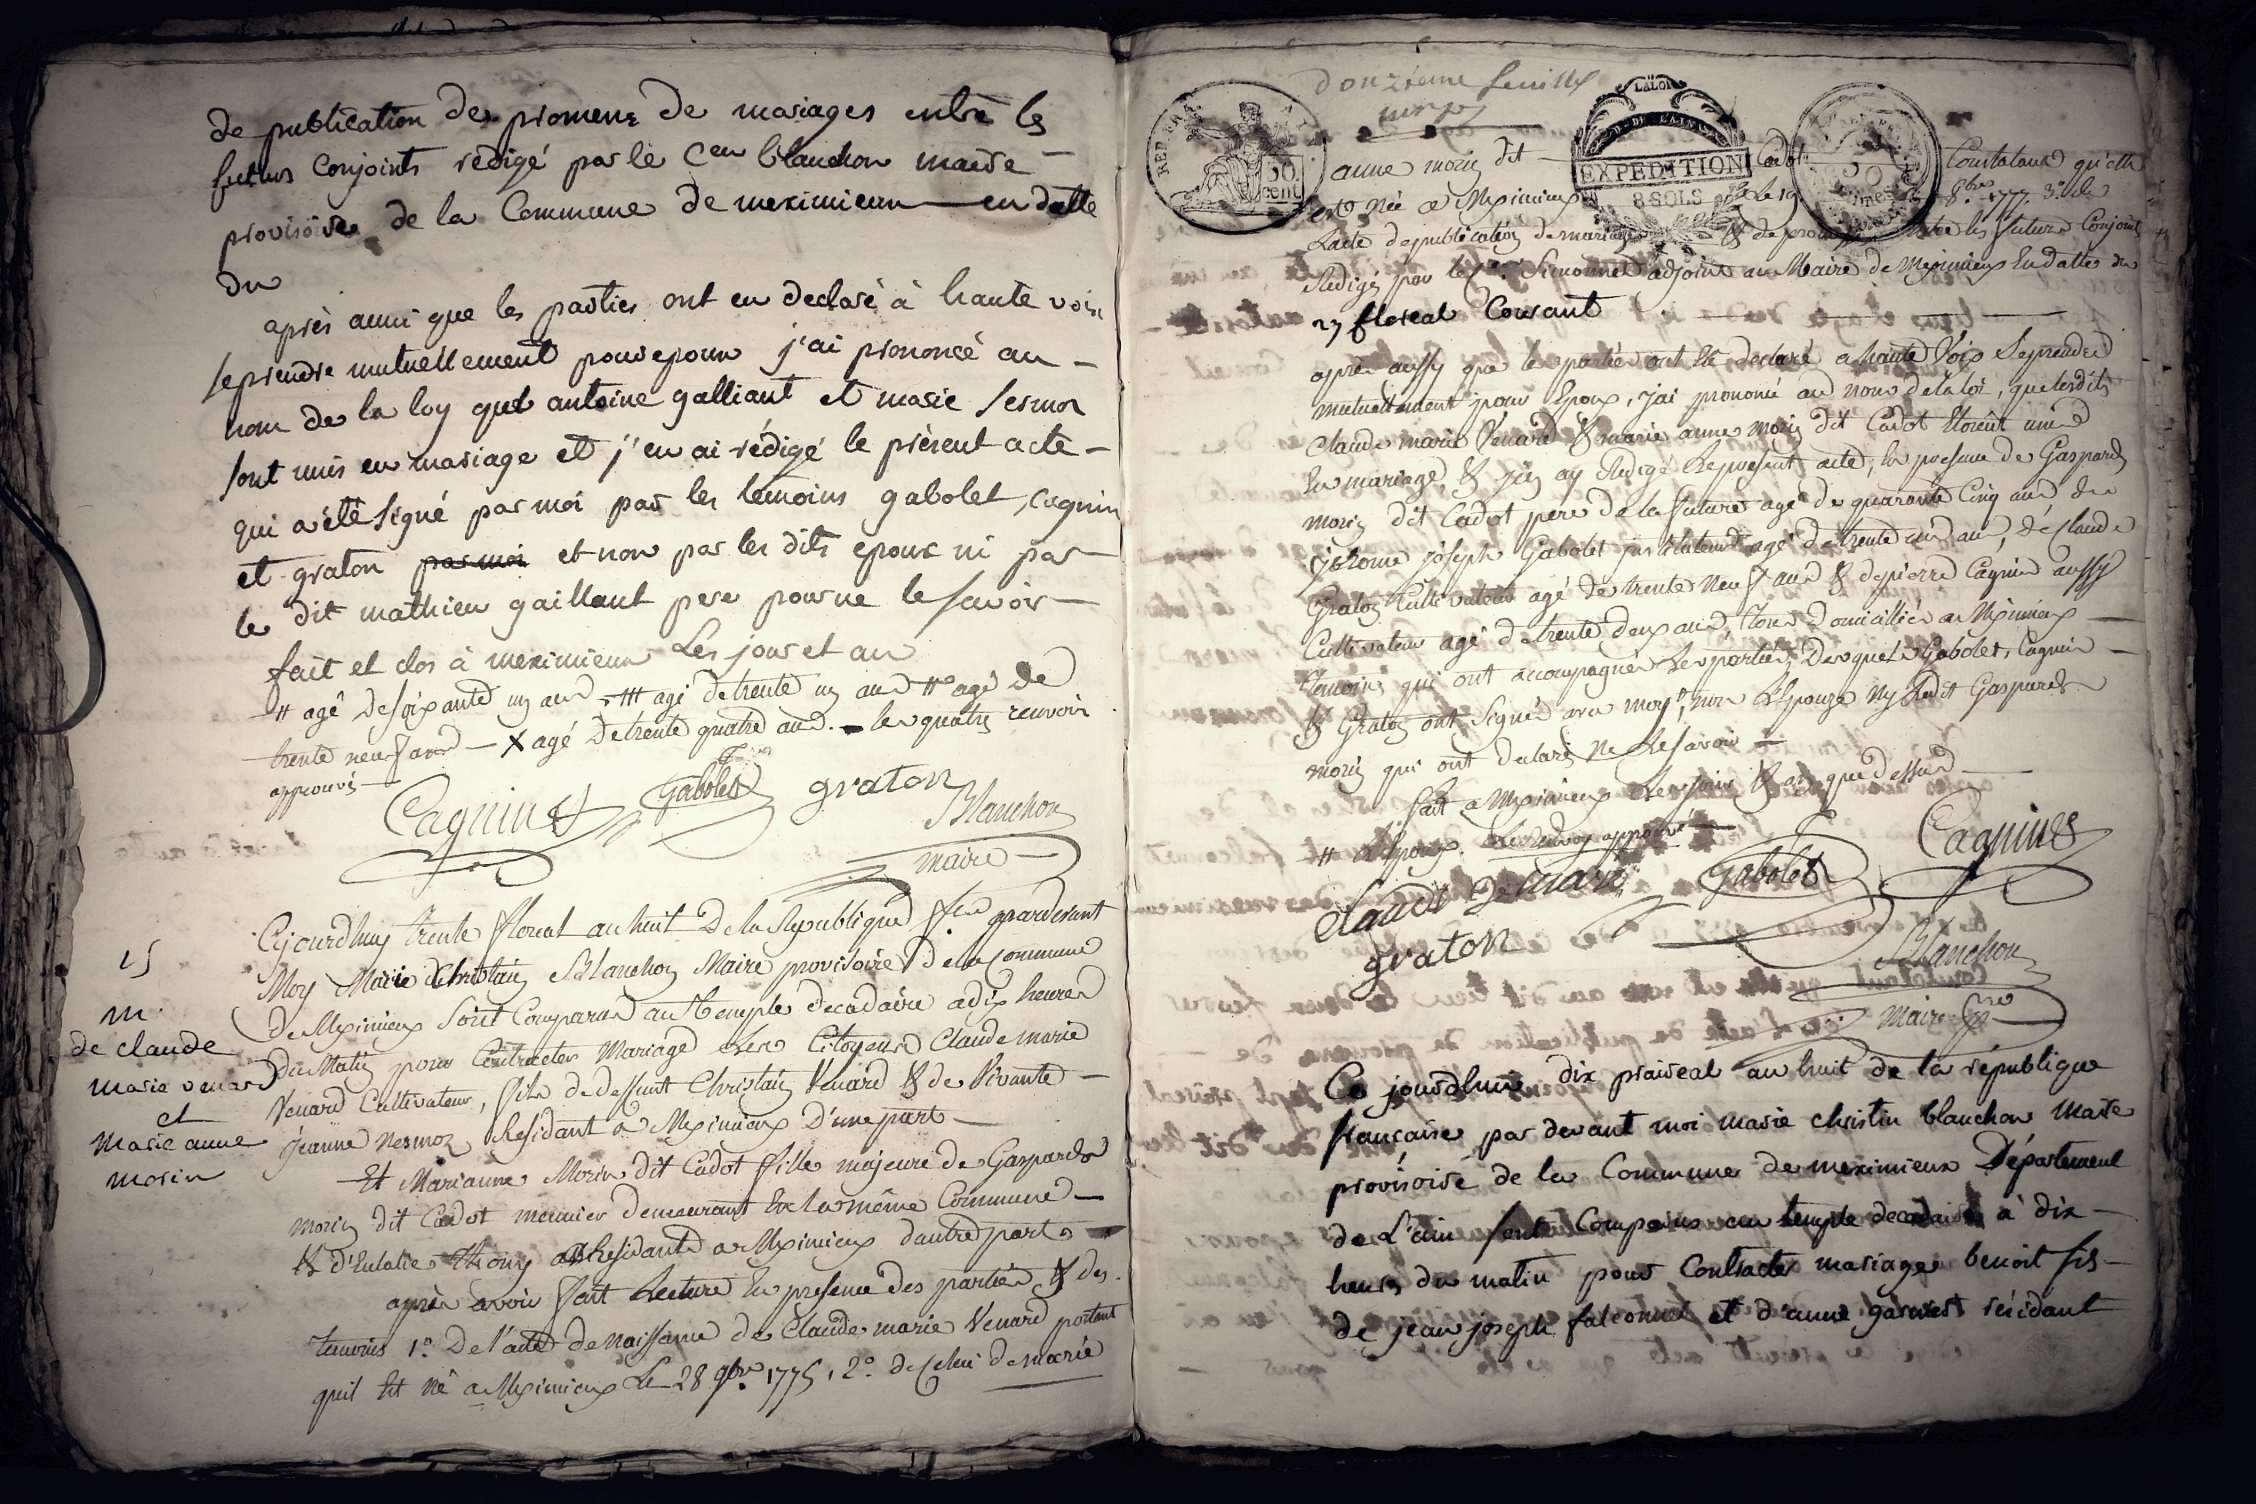 de publication de promene de mariages entre les
futurs conjoints rédigé par le Cen blanchon maire
provisoire de la Commune de meximieux en datte
du
après aussi que les parties ont eu declaré à haute voix
se prendre mutuellement pour epoux j'ai prononcé au
nom de la loy que antoine galliant et marie sermor
sont unis en mariage et j'en ai rédigé le present acte
qui a été signé par moi par les temoins gabolet, cagnin
et graton par moi et non par les dits epoux ni par
le dit mathieu gaillant pere pour ne le savoir
fait et clos à meximieux Les jour et an
# agé de soixante un ans # agé de trente un ans # agé de
trente neuf ans X agé de trente quatre ans. les quatre renvois
approuvés
Cagnin Gabolet graton
Blanchon
maire
15
m.
de claude
marie venard
et
marie anne
morin
Cejourdhuy trente floreal an huit De la Republique pardevant
Moy Marie Christain Blanchon Maire provisoire de la Commune
de Meximieux Sont Comparus au temple decadaire a dix heures
du Matin pour Contracter Mariage Les Citoyens Claude marie
Venard Cultivateur, fils de deffunt Christain Venard & de Vivante
jeanne Nesmoz Residant a Meximieux D'une part
Et Marianne Morin dit Cadot fille majeure de Gaspard
morin dit Cadot meunier demeurant En la même Commune
& d'Eulalie Thony Residante a Meximieux d'autre part
après avoir fait Lecture En presence des parties & des
temoins 1.° De l'acte de naissance de Claude marie Venard portant
quil Est né a Meximieux Le 28 9bre 1775, 2.° de Celui de marie
donzieme feuille
REP. FRA
50
cent
LA LOI
D. DE L'AIN
EXPEDITION
8 SOLS
anne morin dit Cadot Constatant qu'elle
est née a Meximieux le 19 8bre 1777. 3.° de
L'acte de publication de mariage & de promesse entre les futurs Conjoints
Redigé par le Cn Simonnet adjoint au Maire de Meximieux En datte du
27 floreal Courant
après aussy que les parties ont Eté declaré a haute Voix Se prendre
mutuellement pour Epoux, j'ai prononcé au nom de la loi, que lesdits
Claude marie Venard & marie anne morin dit Cadot Etoient unis
En mariage, & j'en ay Redigé Le present acte, En presence de Gaspard
morin dit Cadot pere de la future agé de quarante Cinq ans de
jerome joseph Gabolet instituteur agé de trente un ans, de Claude
Graton Cultivateur agé de trente Neuf ans & de pierre Cagnin aussy
Cultivateur agé de trente deux ans, tous domicilliés a Meximieux
temoins qui ont accompagnés Les parties, Desquels Gabolet, Cagnin
& Graton ont Signés avec moy #, non L'Epouze ny Ledit Gaspard
morin qui ont declarés Ne Le savoir
fait a Meximieux Les jour & an que dessus
# & L'Epoux. Le Renvoy approuvé
Claude Gabolet Cagnin
graton
Blanchon
maire pro
Ce jourdhui dix prairéal an huit de la république
française par devant moi marie christin blanchon Maire
provisoire de la Commune de meximieux Département
de L'ain sont Comparus au temple decadaire à dix
heures du matin pour Contracter mariage benoit fils
de jean joseph falconnet et d'anne garnier résidant